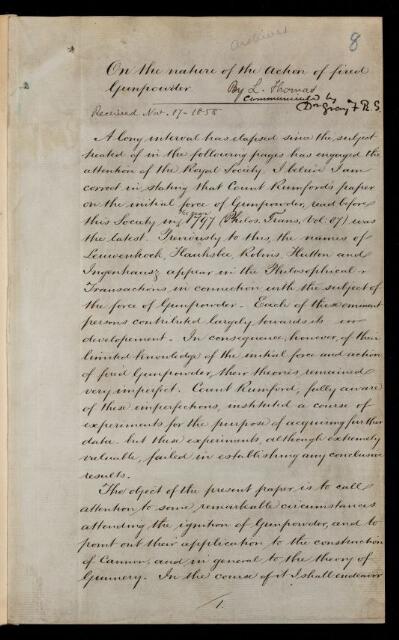 archives
8
On the nature of the Action of fired
Gunpowder By L. Thomas
Communicated by
Dr Gray F R. S.
Received Nov. 17 - 1858
A long interval has elapsed since the subject
treated of in the following pages has engaged the
attention of the Royal Society. I believe I am
correct in stating that Count Rumford's paper
on the initial force of Gunpowder, read before
this Society in 1797 (Philos. Trans. Vol. 87) was
the latest. Previously to this, the names of
Leuwenhoek, Hauksbee, Robins, Hutton and
Ingenhausz appear in the Philosophical
Transactions in connection with the subject of
the force of Gunpowder. Each of these eminent
persons contributed largely towards its
developement. In consequence, however, of their
limited knowledge of the initial force and action
of fired Gunpowder, their theories remained
very imperfect. Count Rumford, fully aware
of these imperfections, instituted a course of
experiments for the purpose of acquiring further
data, but these experiments, although extremely
valuable, failed in establishing any conclusive
results.
The object of the present paper, is to call
attention to some remarkable circumstances
attending the ignition of Gunpowder, and to
point out their application to the construction
of Cannon, and in general to the theory of
Gunnery. In the course of it I shall endeavor
1.